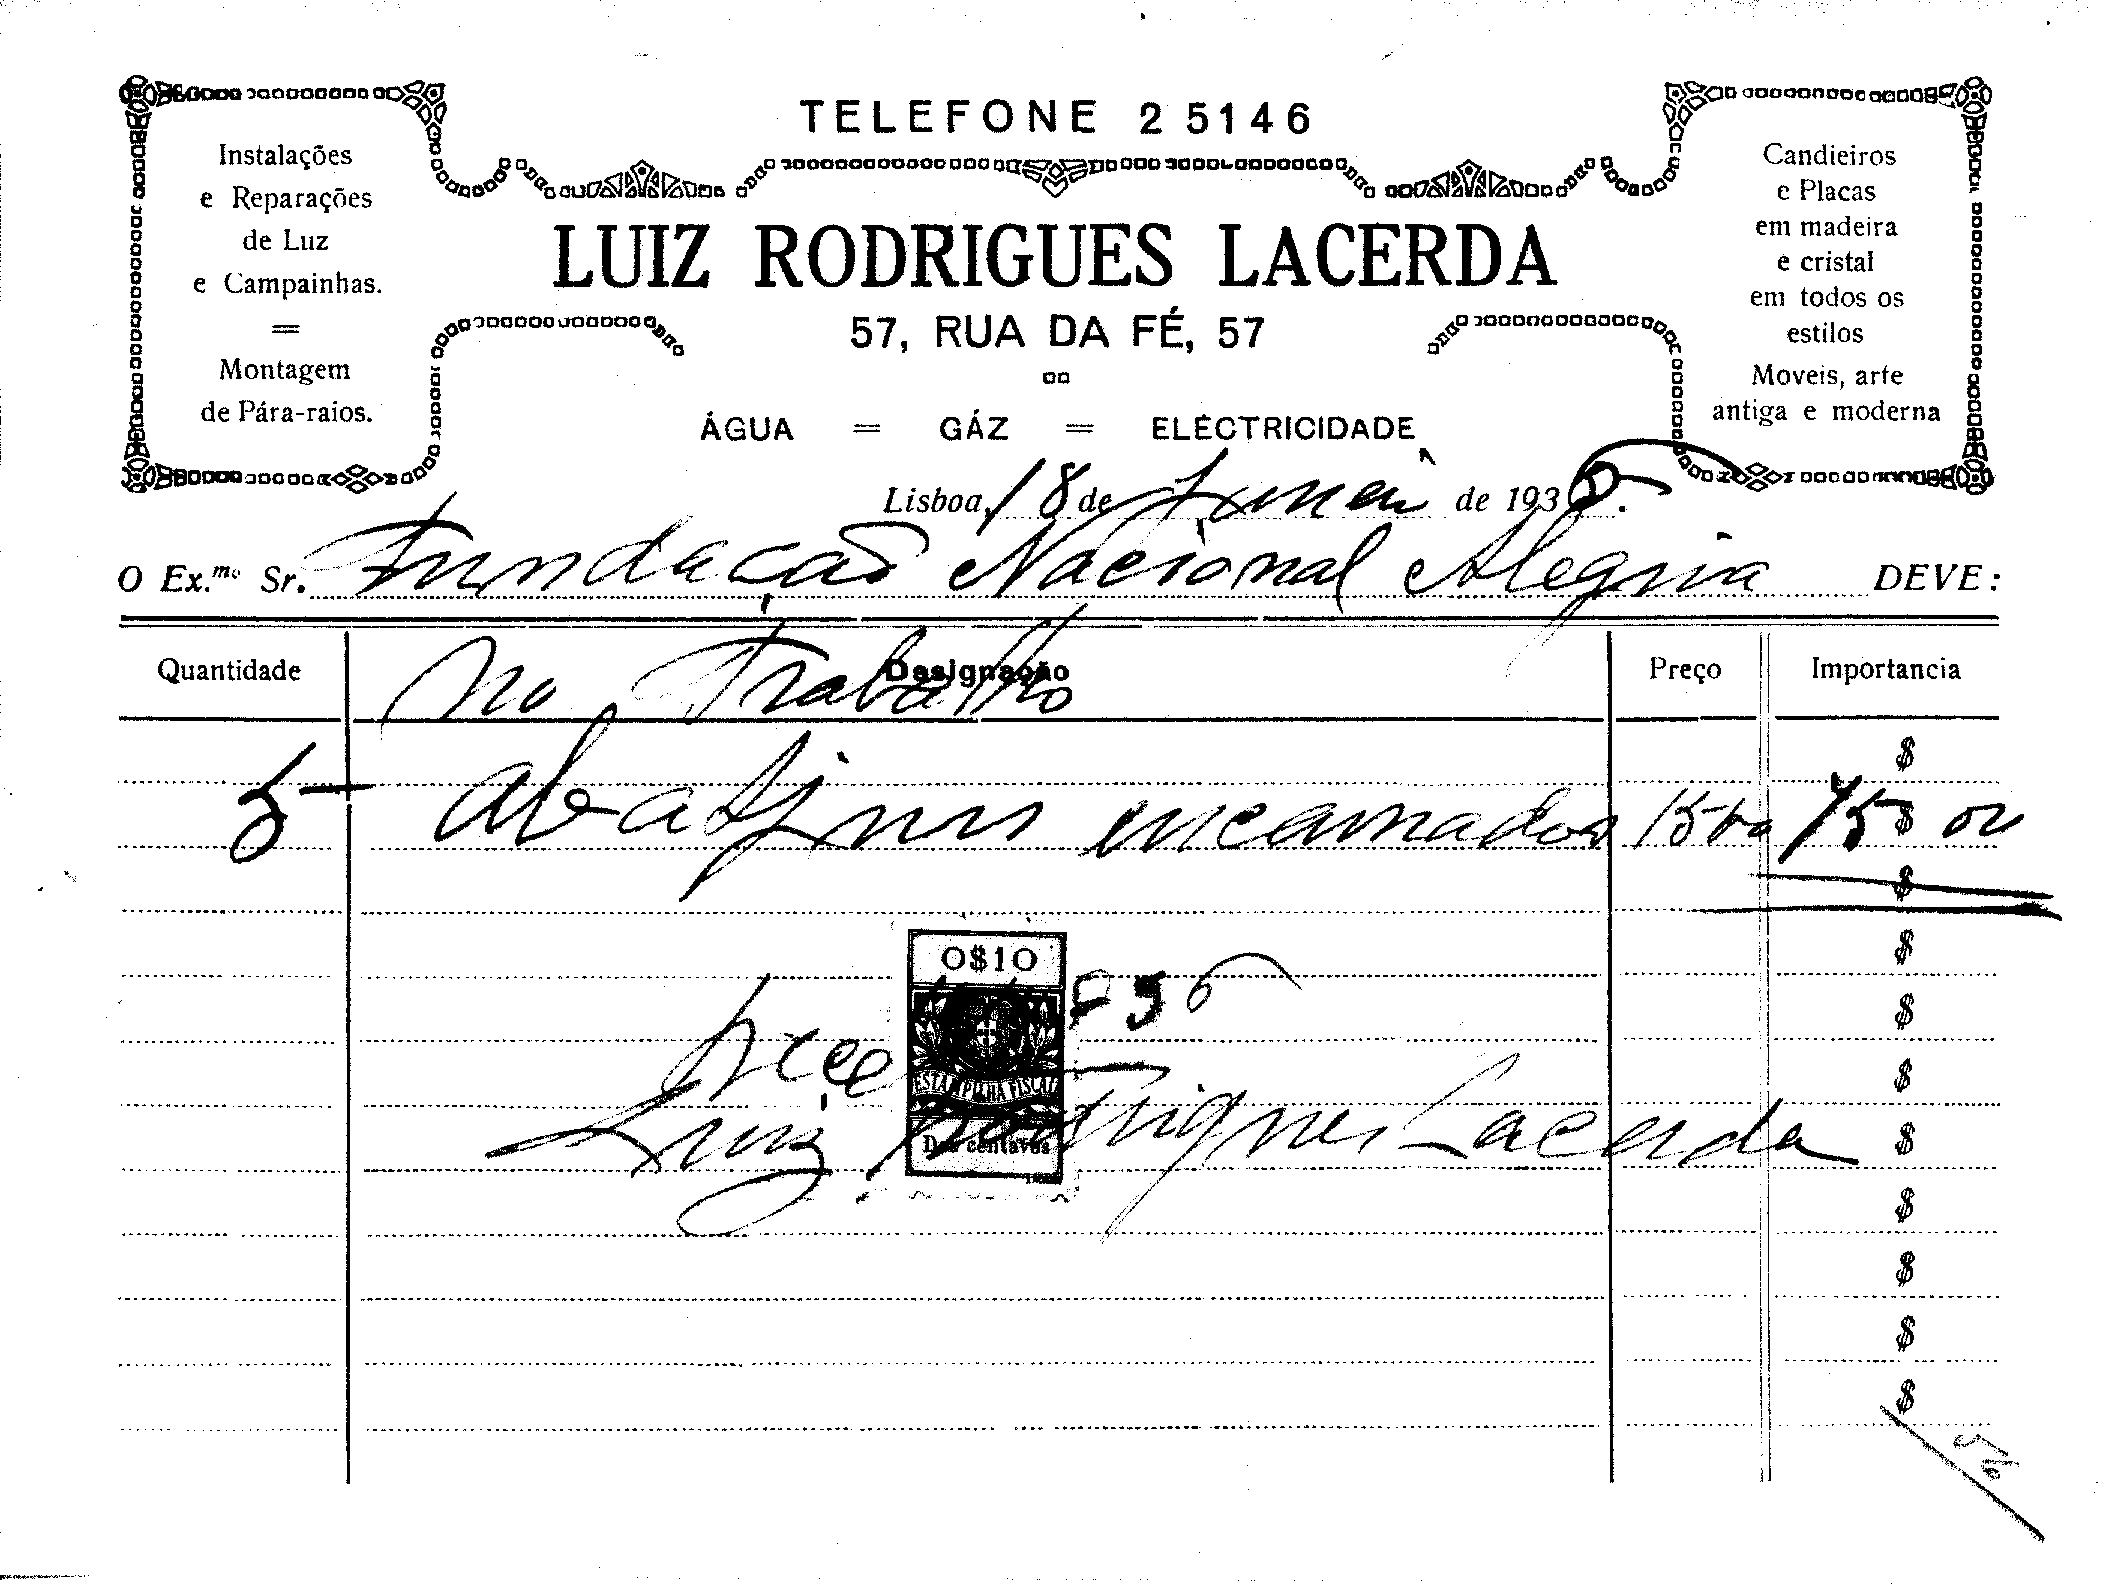 TELEFONE 2 5146
Instalações
e Reparações
de Luz
e Campainhas.
=
Montagem
de Pára-raios.
LUIZ RODRIGUES LACERDA
57, RUA DA FÉ, 57
ÁGUA = GÁZ = ELÉCTRICIDADE
Candieiros
e Placas
em madeira
e cristal
em todos os
estilos
Moveis, arte
antiga e moderna
Lisboa, 18 de de 193
O Ex.mo Sr. Fundação Nacional Alegria DEVE:
Quantidade Designação Preço Importancia
No Trabalho
$
5 encarnados 75$
$
0$10
$
$
ESTAMPILHA FISCAL
$
Luiz Rodrigues Lacerda $
Dez centavos
$
$
$
$
56